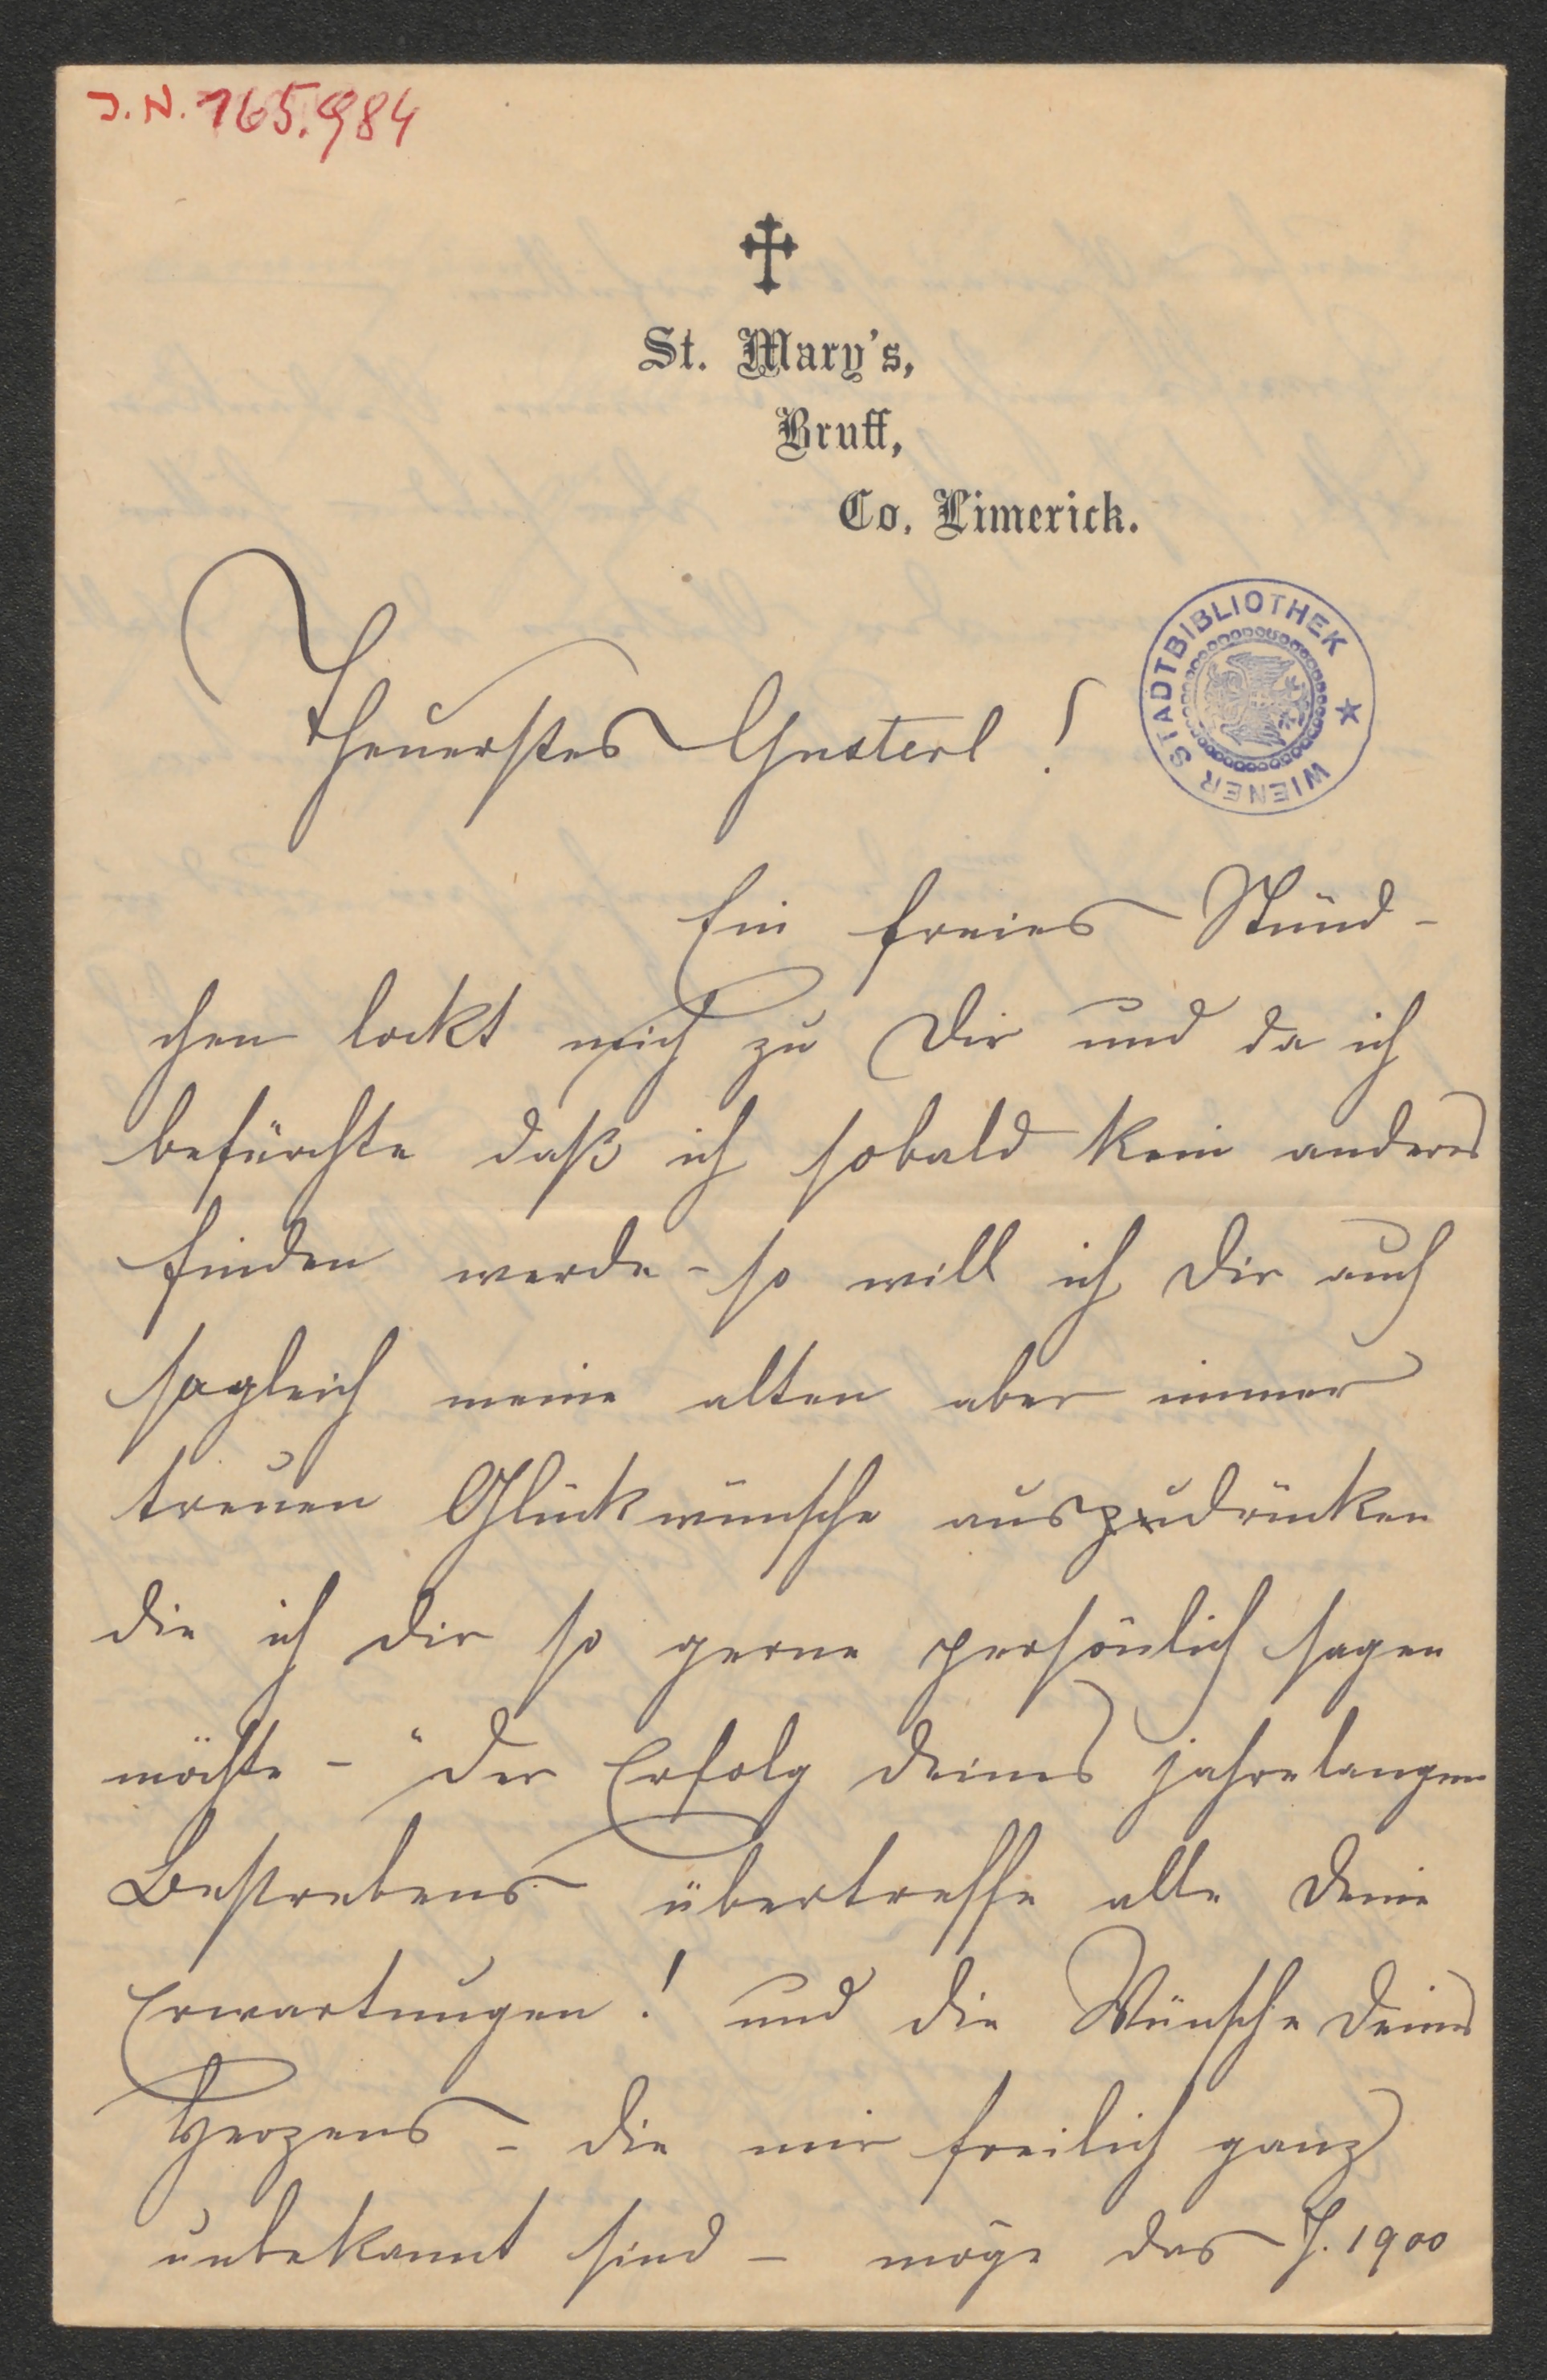 J.N. 165.984
St. Mary's,
Bruff,
Co. Limerick.
WIENER STADTBIBLIOTHEK
Theuerstes Gusterl!
Ein freies Stünd-
chen lockt mich zu Dir und da ich
befürchte daß ich sobald kein anderes
finden werde - so will ich Dir auch
sogleich meine alten aber immer
treuen Glückwünsche auszudrücken
die ich Dir so gerne persönlich sagen
möchte - "Der Erfolg Deines jahrelangen
Bestrebens übertreffe alle Deine
Erwartungen! und die Wünsche Deines
Herzens - die mir freilich ganz
unbekannt sind - möge das J. 1900